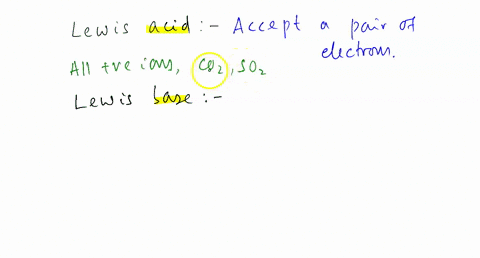 Lewis acid :- Accept a pair of
electrons.
All +ve ions, CO2, SO2
Lewis base :-